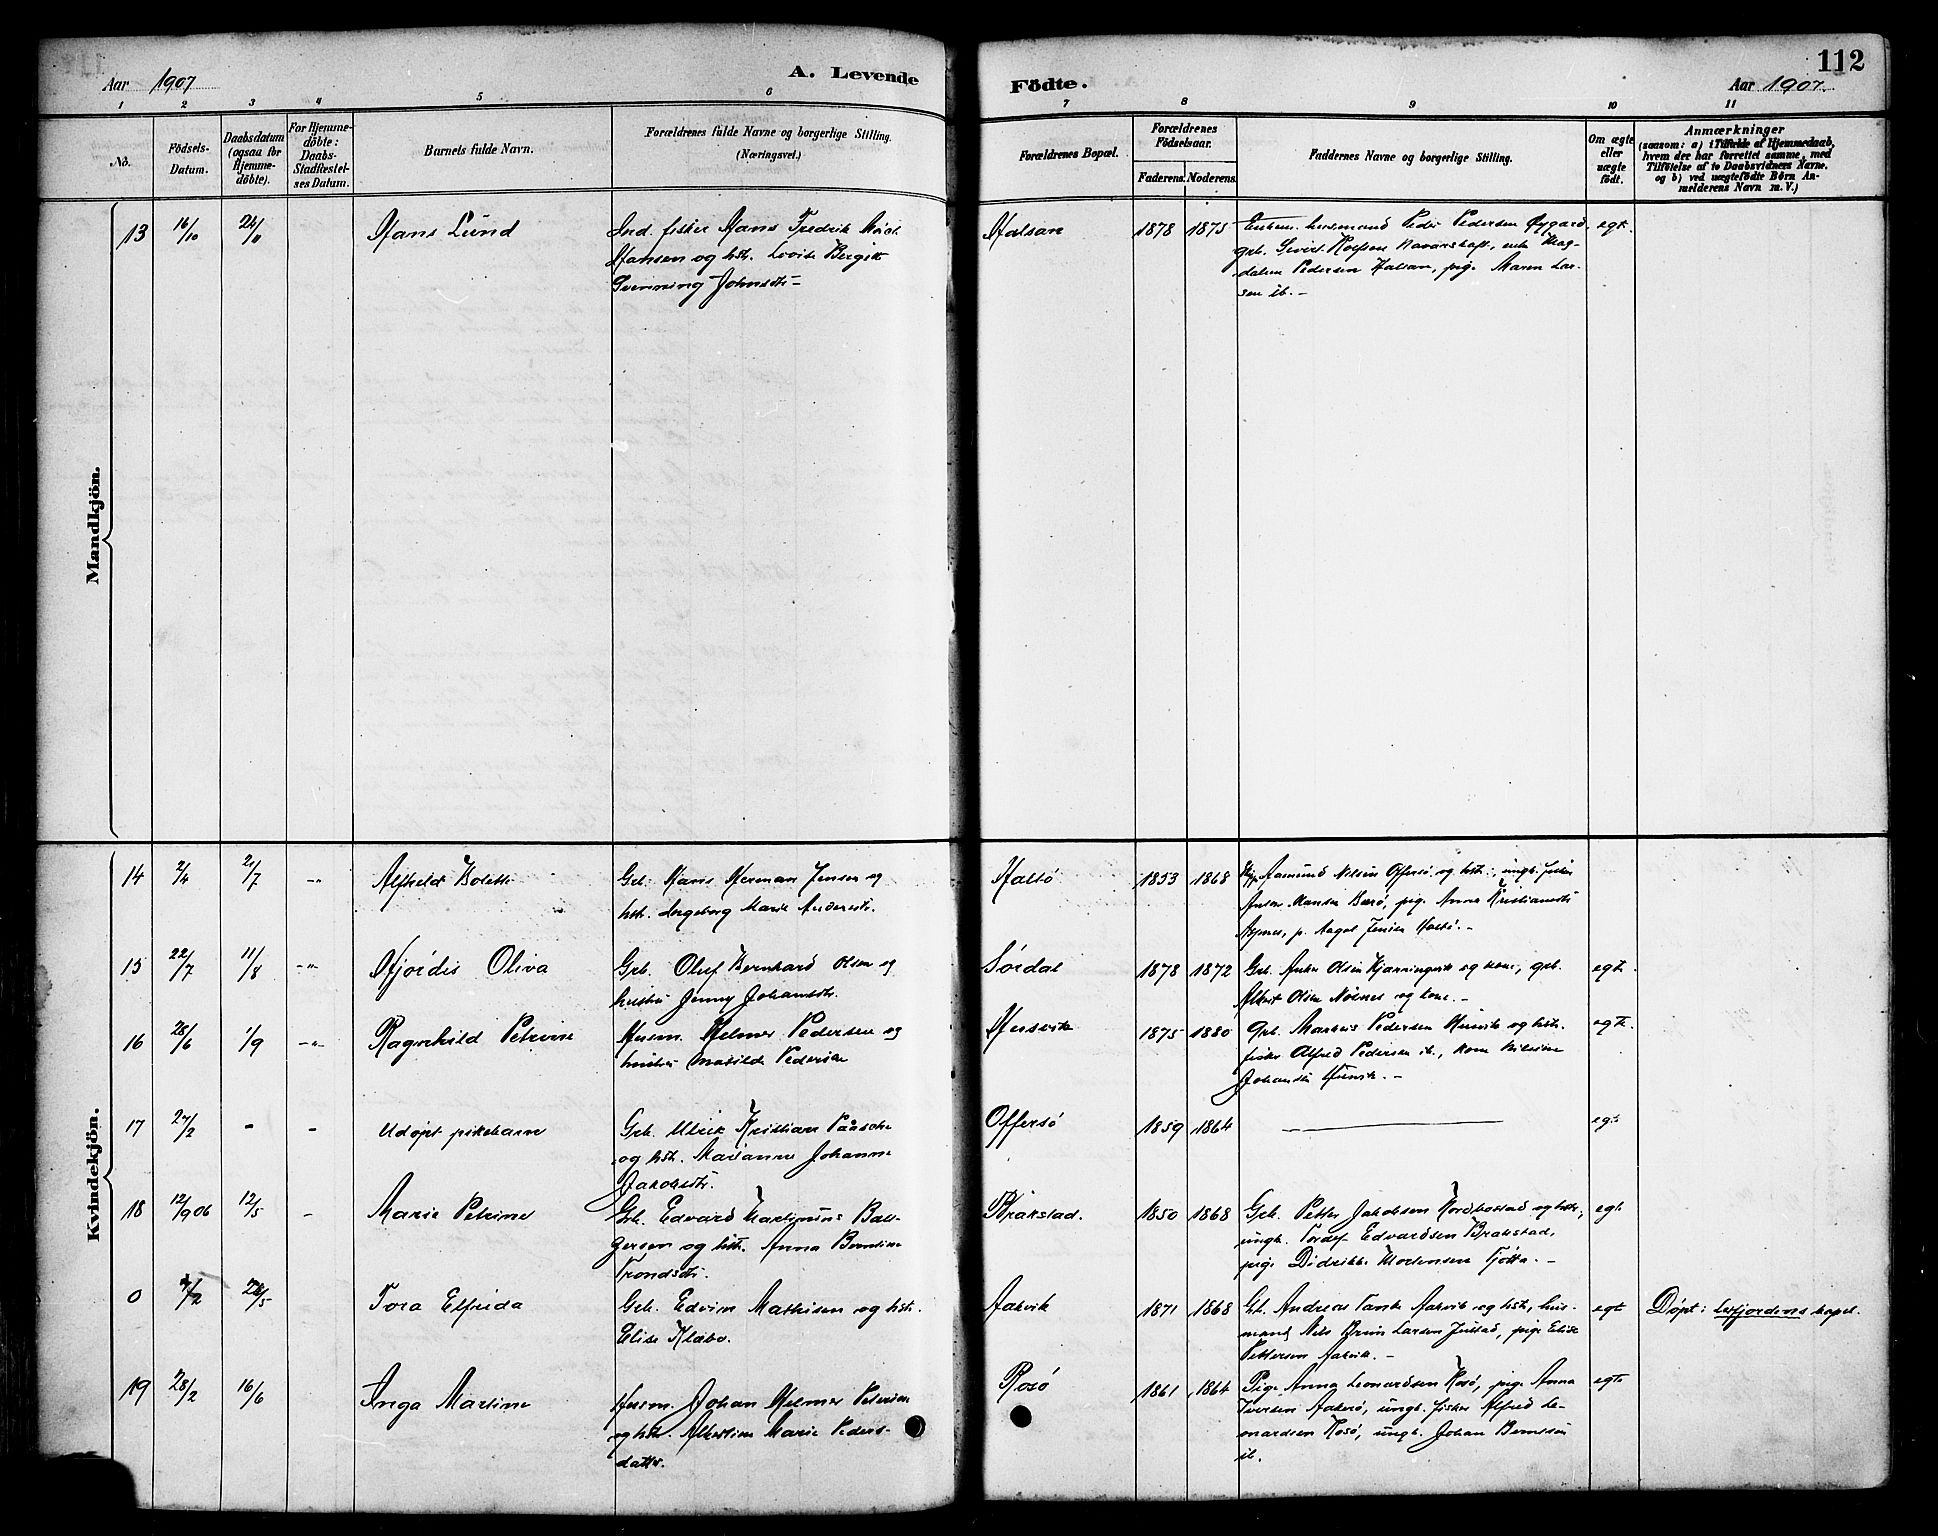 112
Aar 1907
A. Levende
Födte.
Aar 1907
1 2 3 4 5 6 7 8 9 10 11
No.
Födsels-
Datum.
Daabsdatum
(ogsaa for
Hjemme-
döbte).
For Hjemme-
döbte:
Daabs-
Stadfæstel-
ses Datum.
Barnets fulde Navn.
Forældrenes fulde Navne og borgerlige Stilling.
(Næringsvei.)
Forældrenes Bopæl.
Forældrenes
Födselsaar.
Faderens. Moderens.
Faddernes Navne og borgerlige Stilling.
Om ægte
eller
uægte
födt.
Anmærkninger
(saasom: a) i Tilfælde af Hjemmedaab,
hvem der har forrettet samme, med
Tilföielse af to Daabsvidners Navne.
og b) ved uægtefödte Börn An-
melderens Navn m. V.)
Mandkjön.
13 16/10 24/11 Hans Lund
Ind. fisker Hans Fredrik
Hansen og hst. Lovise Bergit
Svenning Johnsdtr
Halsan 1878 1875
husmand Peder Pedersen Øygard,
gbr. Sivert enke Mag-
dalene Pedersen Halsan, pige Maren Lar-
sen ib. -
egt.
Kvindekjön.
14 2/4 21/7 -"- Alfhild Bolette
Gbr. Hans Herman Jensen og
hst. Ingeborg Marie Andersdtr.
Halsö 1833 1868
Aamund Nilsen Offersö og hst., ungk. fisker
Anton Hansen Barö, pige Anna Kristiansdtr
p. Aagot Jensen Halsö. -
15 22/7 11/8 -"- Hjördis Oliva
Gbr. Oluf Bernhard Olsen og
hustru Jenny Johansdtr.
Sördal 1878 1872
Gbr. Anton Olsen og kone, gbr.
Albert Olsen og kone. -
egt.
16 28/6 1/9 -"- Ragnhild Petrine
Husm. Helmer Pedersen og
hustru Matilde Pedersen
Husvik 1875 1880
Gbr. Markus Pedersen Husvik og hst.
fisker Alfred Pedersen ib., kone
Johansen Husvik. -
egte.
17 27/2 - - Udøpt pikebarn
Gbr. Ulrik Kristian Paasche
og hst. Marianne Johanna
Jakobsdtr.
Offersö 1859 1864
egte
18 12/9 06 12/5 - Marie Petrine
Gbr. Edvard Martinus Bal-
zersen og hst. Anna Berntine
Trondsdtr.
Brakstad. 1850 1868
Gbr. Petter Jakobsen Nordbostad og hstr.,
ungk. Tordef Edvardsen Brakstad,
pige Didrikke Mortensen Tjötta. -
egt.
0 7/2 28/5 Tora Elfrida
Gbr. Edvin Mathisen og hst.
Elise Klæbo.
Aakvik 1871 1868
Gbr. Andreas Tank Aakvik og hst, hus-
mand Nils Brun Larsen Justad, pige Elise
Pettersen Aakvik. -
egt
Döpt i Leirfjordens kapel.
19 28/2 16/6 Inga Martine
Husm. Johan Helmer Petersen
og hst. Albertine Marie Peders-
datter.
Rosö 1861 1864
Pige Anna Leonardsen Rosö, pige Anna
Iversen Aakerö, ungk. fisker Alfred Le-
onardsen Rosö, ungk. Johan Berntsen
ib.
egte